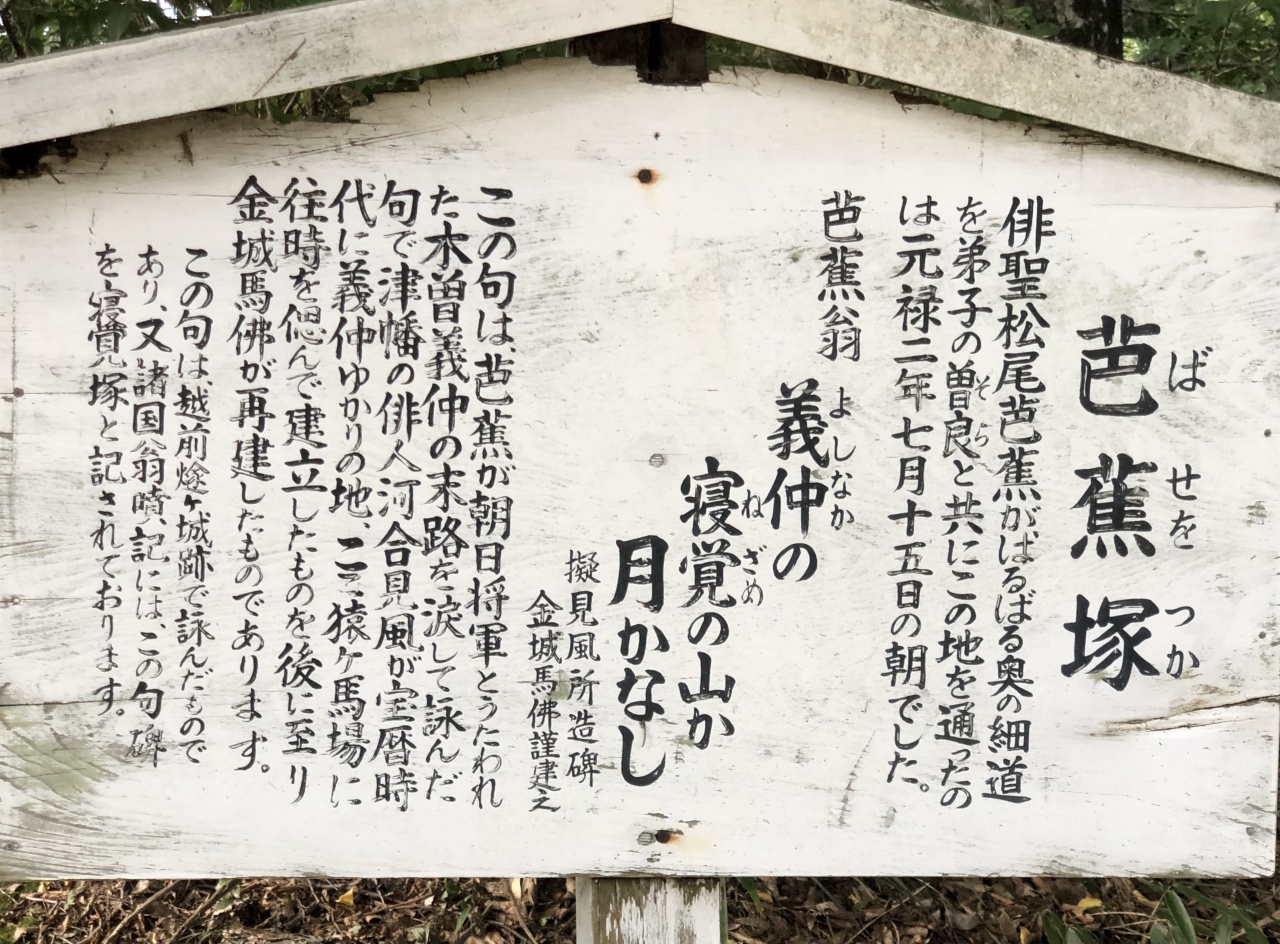 芭蕉塚
ばせをつか
俳聖松尾芭蕉がはるばる奥の細道
を弟子の曽良と共にこの地を通ったの
そら
は元禄二年七月十五日の朝でした。
芭蕉翁
義仲の
よしなか
寝覚の山か
ねざめ
月かなし
擬見風所造碑
金城馬佛謹建之
この句は、芭蕉が朝日将軍とうたわれ
た木曽義仲の末路を涙して詠んだ
句で津幡の俳人河合見風が宝暦時
代に義仲ゆかりの地、ここ猿ヶ馬場に
往時を偲んで建立したものを後に至り
金城馬佛が再建したものであります。
この句は、越前燧ヶ城跡で詠んだもので
あり、又諸国翁噴記には、この句碑
を寝覚塚と記されております。